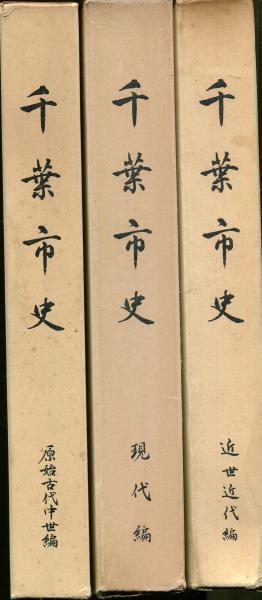 千葉市史
原始古代中世編
千葉市史
現代編
千葉市史
近世近代編